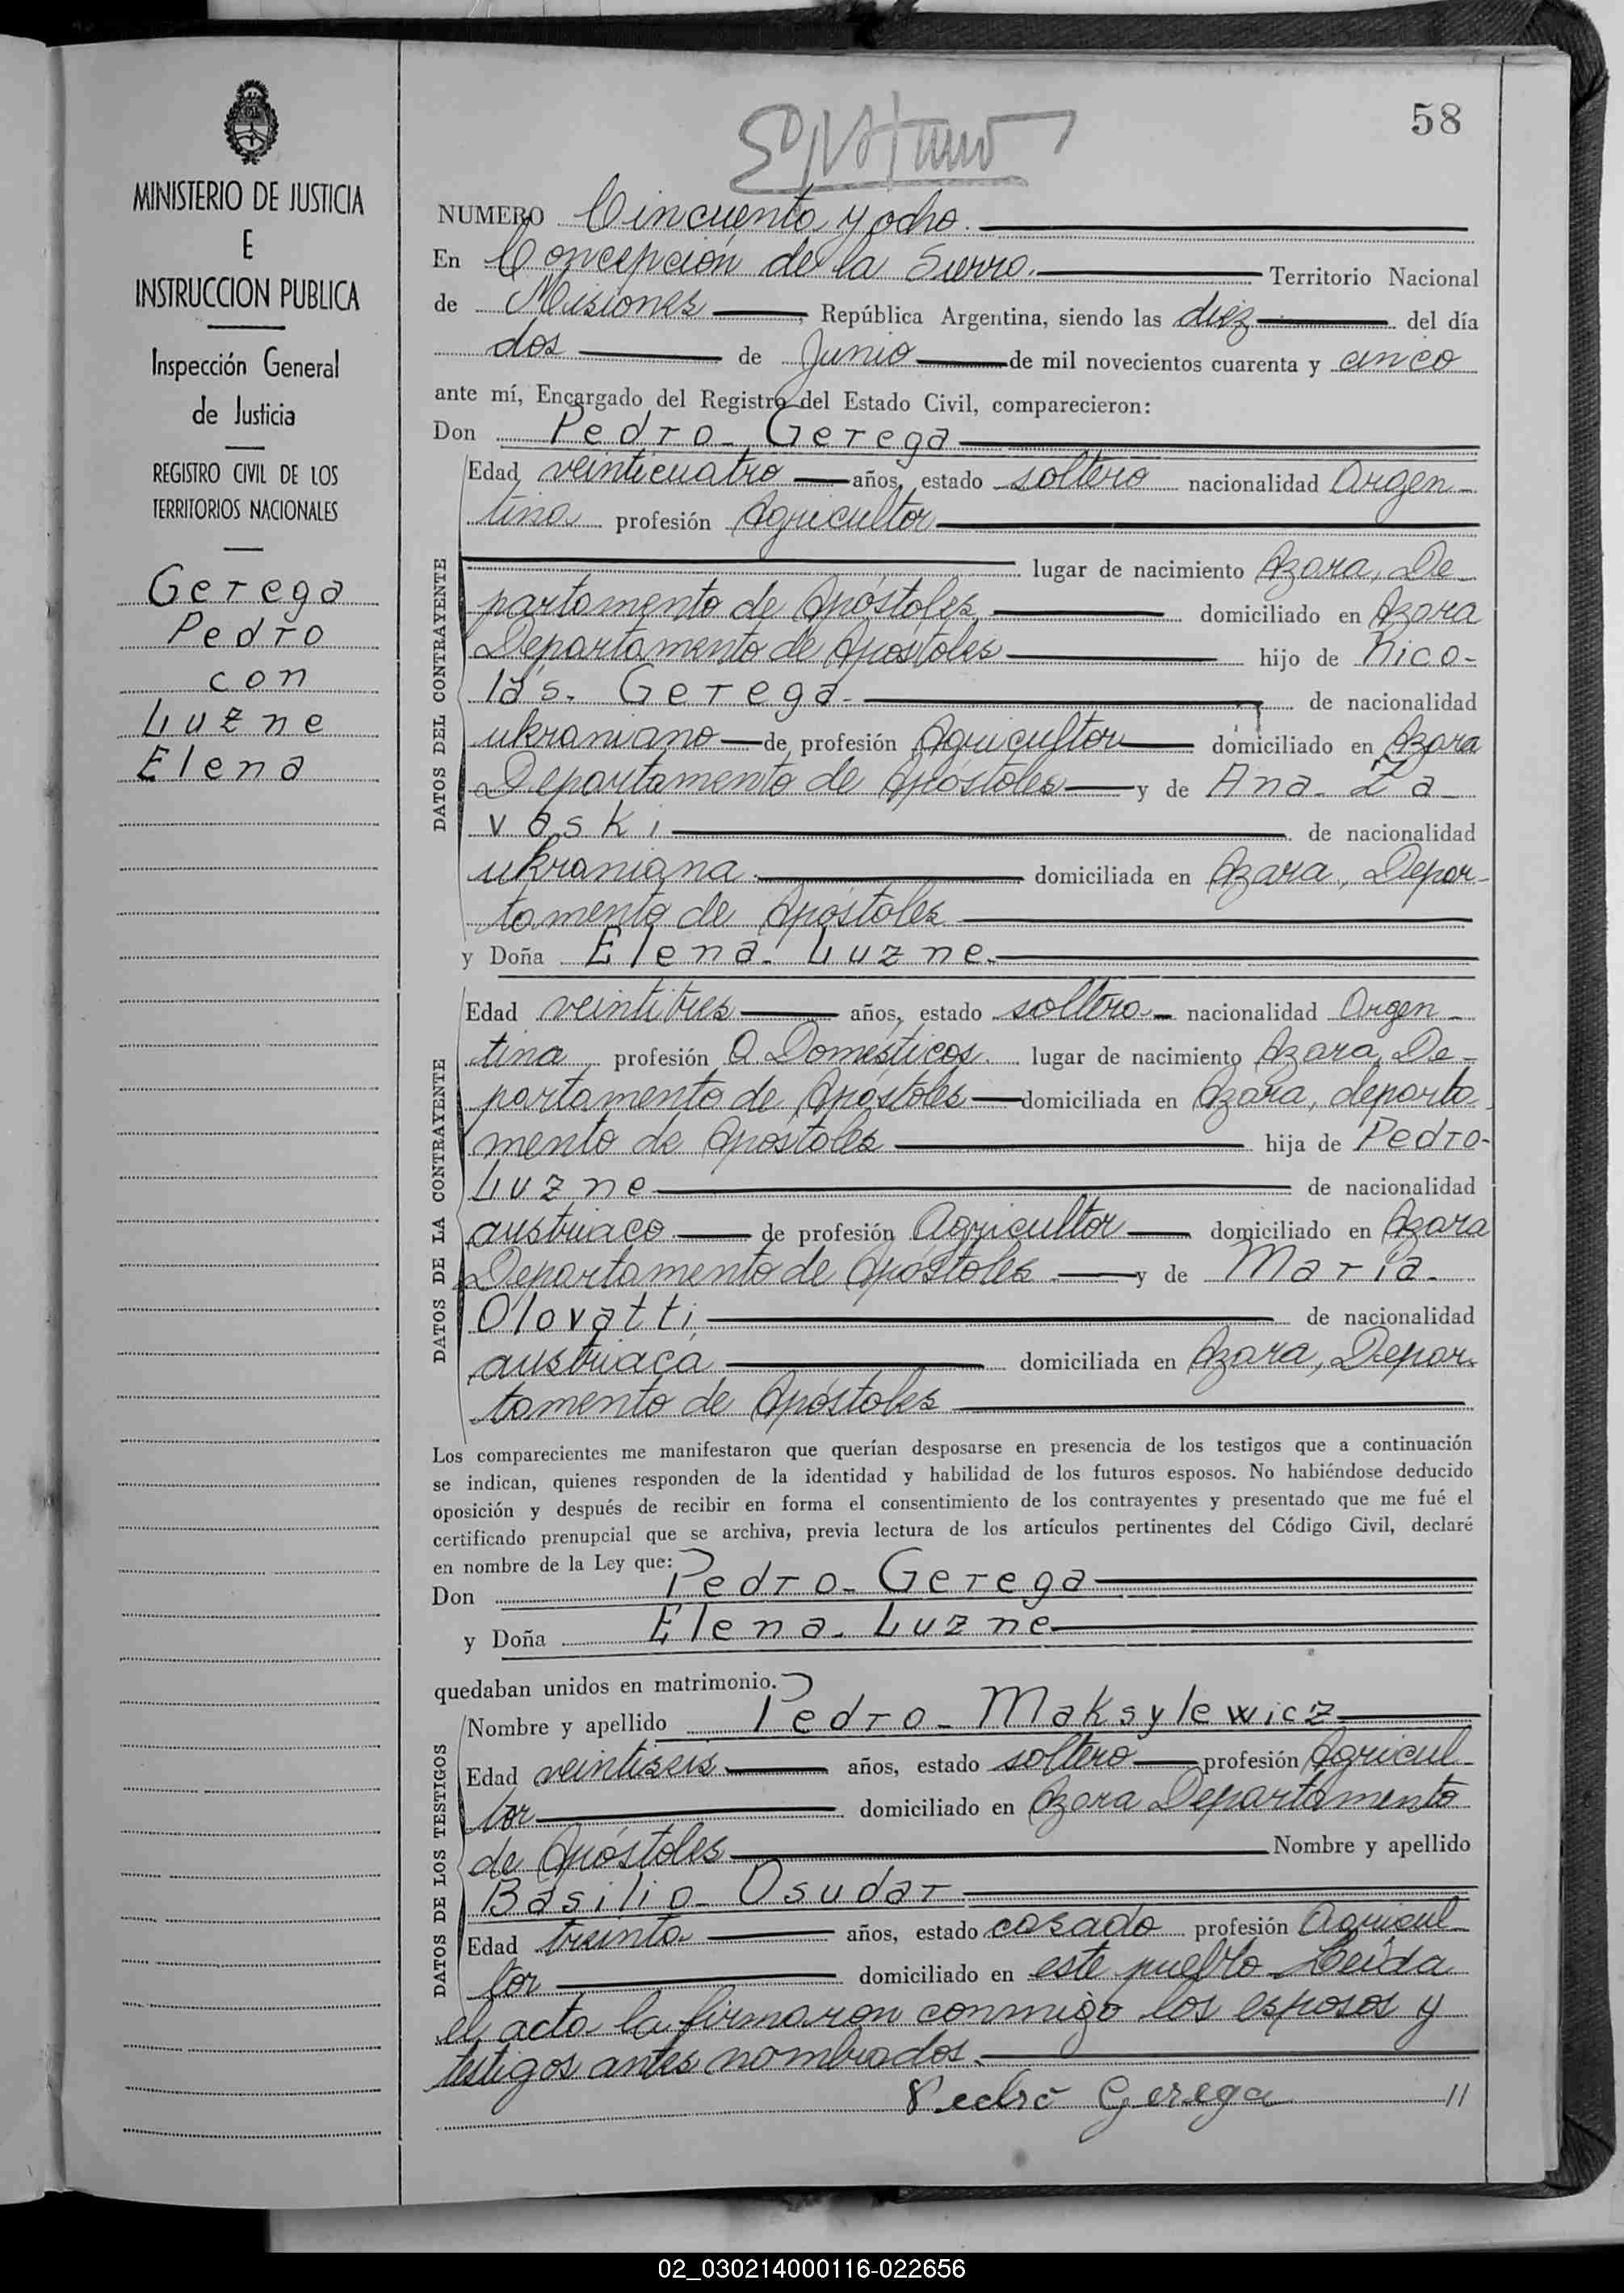 58
MINISTERIO DE JUSTICIA
E
INSTRUCCION PUBLICA
Inspección General
de Justicia
REGISTRO CIVIL DE LOS
TERRITORIOS NACIONALES
Gerega
Pedro
con
Luzne
Elena
NUMERO Cincuenta y ocho.
En Concepción de la Sierra. Territorio Nacional
de Misiones, República Argentina, siendo las diez del día
dos de Junio de mil novecientos cuarenta y cinco
ante mí, Encargado del Registro del Estado Civil, comparecieron:
Don Pedro Gerega
DATOS DEL CONTRAYENTE
Edad veinticuatro años, estado soltero nacionalidad Argen-
tina profesión Agricultor
lugar de nacimiento Azara, De-
partamento de Apóstoles, domiciliado en Azara
Departamento de Apóstoles hijo de Nico-
lás. Gerega. de nacionalidad
ukraniano de profesión Agricultor domiciliado en Azara
Departamento de Apóstoles y de Ana Za-
vaski de nacionalidad
ukraniana. domiciliada en Azara, Depar-
tamento de Apóstoles
y Doña Elena Luzne.
DATOS DE LA CONTRAYENTE
Edad veintitres años, estado soltera nacionalidad Argen-
tina profesión Q. Domésticos. lugar de nacimiento Azara, De-
partamento de Apóstoles domiciliada en Azara, departa
mento de Apóstoles hija de Pedro-
Luzne de nacionalidad
austriaco de profesión Agricultor domiciliado en Azara
Departamento de Apóstoles y de María
Olovatti de nacionalidad
austriaca domiciliada en Azara, Depar-
tamento de Apóstoles
Los comparecientes me manifestaron que querían desposarse en presencia de los testigos que a continuación
se indican, quienes responden de la identidad y habilidad de los futuros esposos. No habiéndose deducido
oposición y después de recibir en forma el consentimiento de los contrayentes y presentado que me fué el
certificado prenupcial que se archiva, previa lectura de los artículos pertinentes del Código Civil, declaré
en nombre de la Ley que:
Don Pedro Gerega
y Doña Elena Luzne
quedaban unidos en matrimonio.
DATOS DE LOS TESTIGOS
Nombre y apellido Pedro Maksylewicz
Edad veintiseis años, estado soltero profesión Agricul-
tor domiciliado en Azara Departamento
de Apóstoles Nombre y apellido
Basilio Osudar
Edad treinta años, estado casado profesión Agricul-
tor domiciliado en este pueblo Leída
el acta la firmaron conmigo los esposos y
testigos antes nombrados.
Pedro Gerega //
02_030214000116-022656